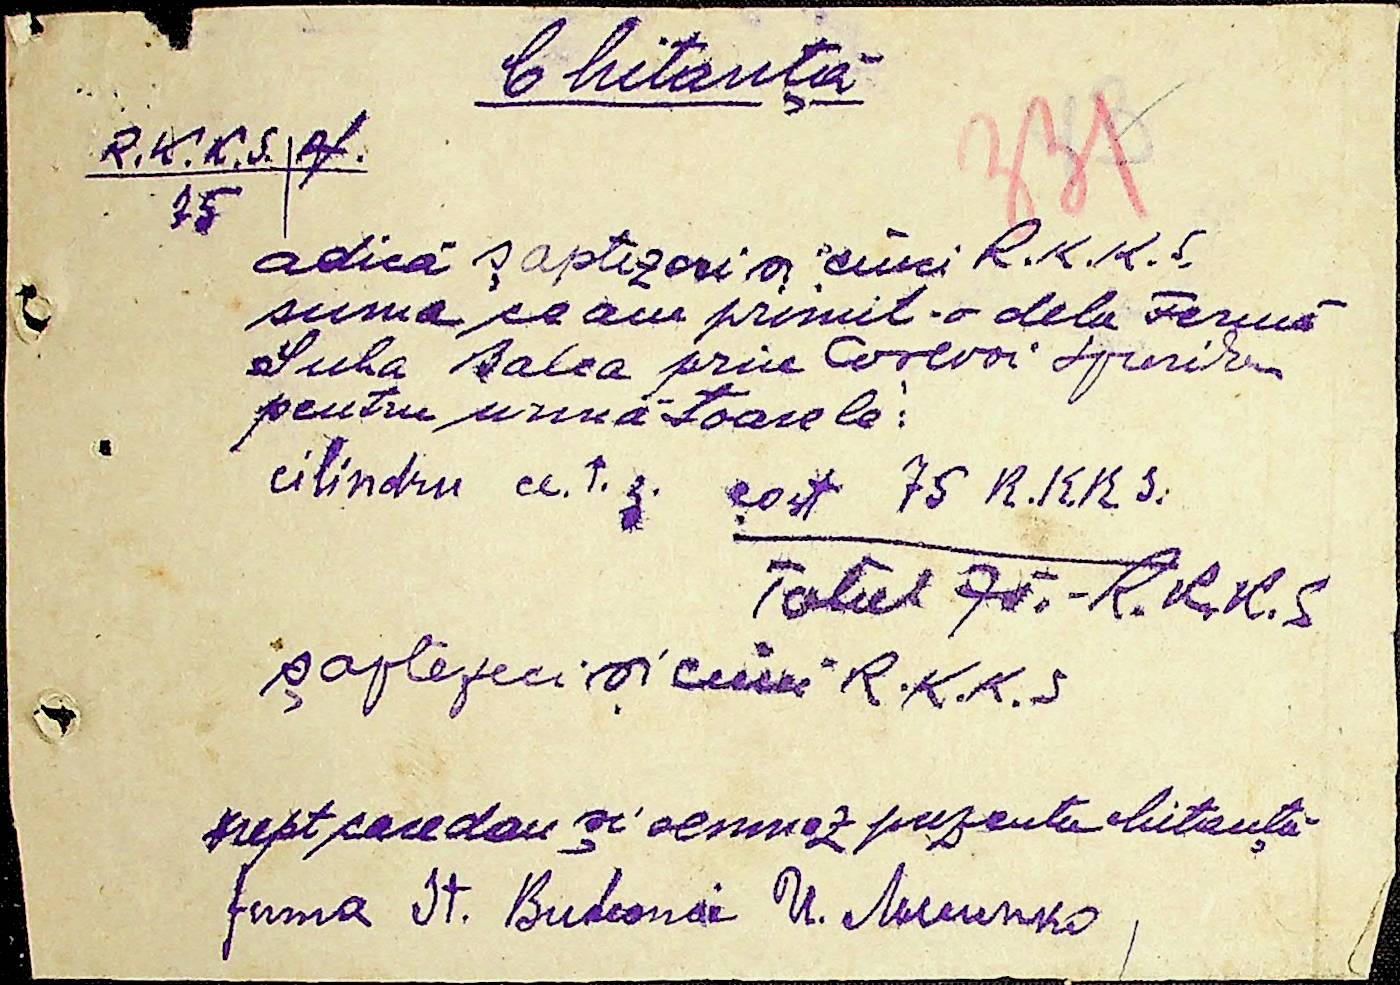 Chitanță
331
R.K.K.S. pf.
75
adică șaptezeci și cinci R.K.K.S.
suma ce am primit-o dela Fermă
Suha Balca prin Spiridon
pentru următoarele:
cilindru cost 75 R.K.K.S.
Total 75.- R.K.K.S
șaptezeci și cinci R.K.K.S
drept care dau și semnez prezenta chitanță
ferma St. U.